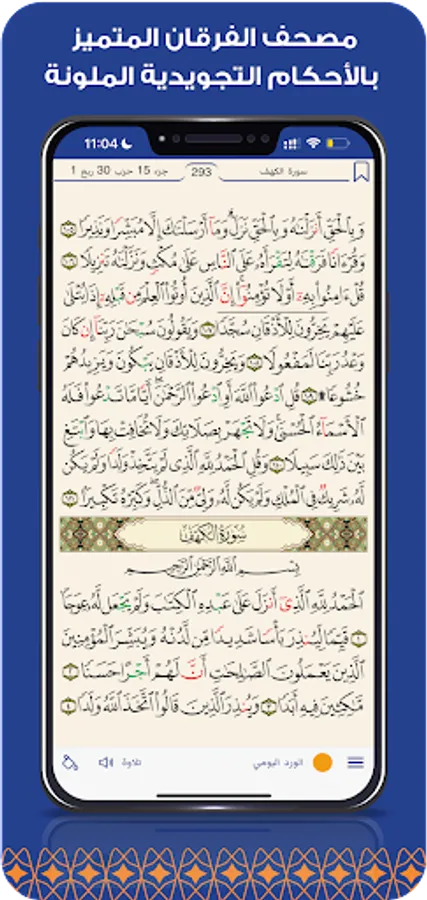 مصحف الفرقان المتميز
بالأحكام التجويدية الملونة
11:04
سورة الكهف 293 جزء 15 حزب 30 ربع 1
وَبِالْحَقِّ أَنزَلْنَاهُ وَبِالْحَقِّ نَزَلَ وَمَا أَرْسَلْنَاكَ إِلَّا مُبَشِّرًا وَنَذِيرًا ١٠٥
وَقُرْءَانًا فَرَقْنَاهُ لِتَقْرَأَهُ عَلَى النَّاسِ عَلَى مُكْثٍ وَنَزَّلْنَاهُ تَنزِيلًا ١٠٦
قُلْ ءَامِنُوا بِهِ أَوْ لَا تُؤْمِنُوا إِنَّ الَّذِينَ أُوتُوا الْعِلْمَ مِن قَبْلِهِ إِذَا يُتْلَى
عَلَيْهِمْ يَخِرُّونَ لِلْأَذْقَانِ سُجَّدًا ١٠٧ وَيَقُولُونَ سُبْحَانَ رَبِّنَا إِن كَانَ
وَعْدُ رَبِّنَا لَمَفْعُولًا ١٠٨ وَيَخِرُّونَ لِلْأَذْقَانِ يَبْكُونَ وَيَزِيدُهُمْ
خُشُوعًا ۩ ١٠٩ قُلِ ادْعُوا اللَّهَ أَوِ ادْعُوا الرَّحْمَنَ أَيًّا مَّا تَدْعُوا فَلَهُ
الْأَسْمَاءُ الْحُسْنَى وَلَا تَجْهَرْ بِصَلَاتِكَ وَلَا تُخَافِتْ بِهَا وَابْتَغِ
بَيْنَ ذَلِكَ سَبِيلًا ١١٠ وَقُلِ الْحَمْدُ لِلَّهِ الَّذِي لَمْ يَتَّخِذْ وَلَدًا وَلَمْ يَكُن
لَّهُ شَرِيكٌ فِي الْمُلْكِ وَلَمْ يَكُن لَّهُ وَلِيٌّ مِّنَ الذُّلِّ وَكَبِّرْهُ تَكْبِيرًا ١١١
سُورَةُ الْكَهْفِ
بِسْمِ اللَّهِ الرَّحْمَنِ الرَّحِيمِ
الْحَمْدُ لِلَّهِ الَّذِي أَنزَلَ عَلَى عَبْدِهِ الْكِتَابَ وَلَمْ يَجْعَل لَّهُ عِوَجًا
١ قَيِّمًا لِّيُنذِرَ بَأْسًا شَدِيدًا مِّن لَّدُنْهُ وَيُبَشِّرَ الْمُؤْمِنِينَ
الَّذِينَ يَعْمَلُونَ الصَّالِحَاتِ أَنَّ لَهُمْ أَجْرًا حَسَنًا ٢
مَّاكِثِينَ فِيهِ أَبَدًا ٣ وَيُنذِرَ الَّذِينَ قَالُوا اتَّخَذَ اللَّهُ وَلَدًا ٤
الورد اليومي تلاوة